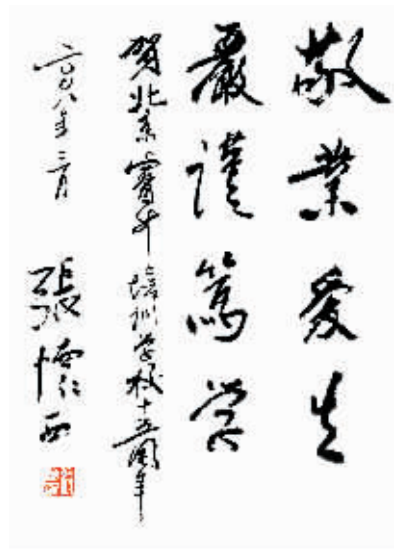 敬業愛生
嚴謹篤学
賀北京培训学校十五周年
二〇〇八年三月
張懷西